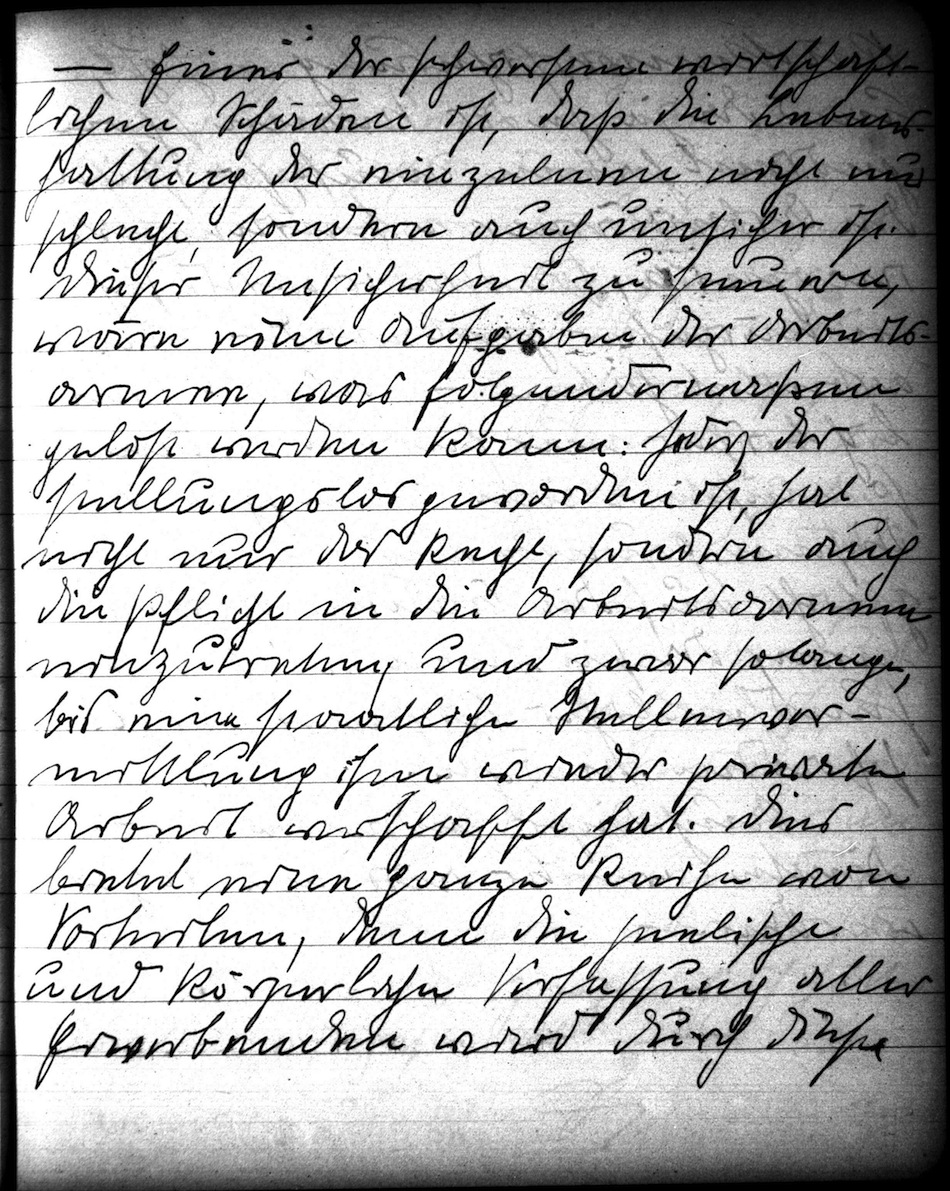 — Eines der schwersten wirtschaft-
lichen Schäden ist, daß die Lebens-
haltung der einzelnen nicht nur
schlecht, sondern auch unsicher ist.
Dieser Unsicherheit zu steuern,
wäre eine Aufgabe der Arbeits-
armee, was folgendermaßen
gelöst werden kann: Jeder der
stellungslos geworden ist, hat
nicht nur das Recht, sondern auch
die Pflicht in die Arbeitsarmee
einzutreten und zwar solange,
bis eine staatliche Stellenver-
mittlung ihm wieder private
Arbeit verschafft hat. Dies
bietet eine ganze Reihe von
Vorteilen, denn die seelische
und körperliche Verfassung aller
Erwerbenden wird durch diese